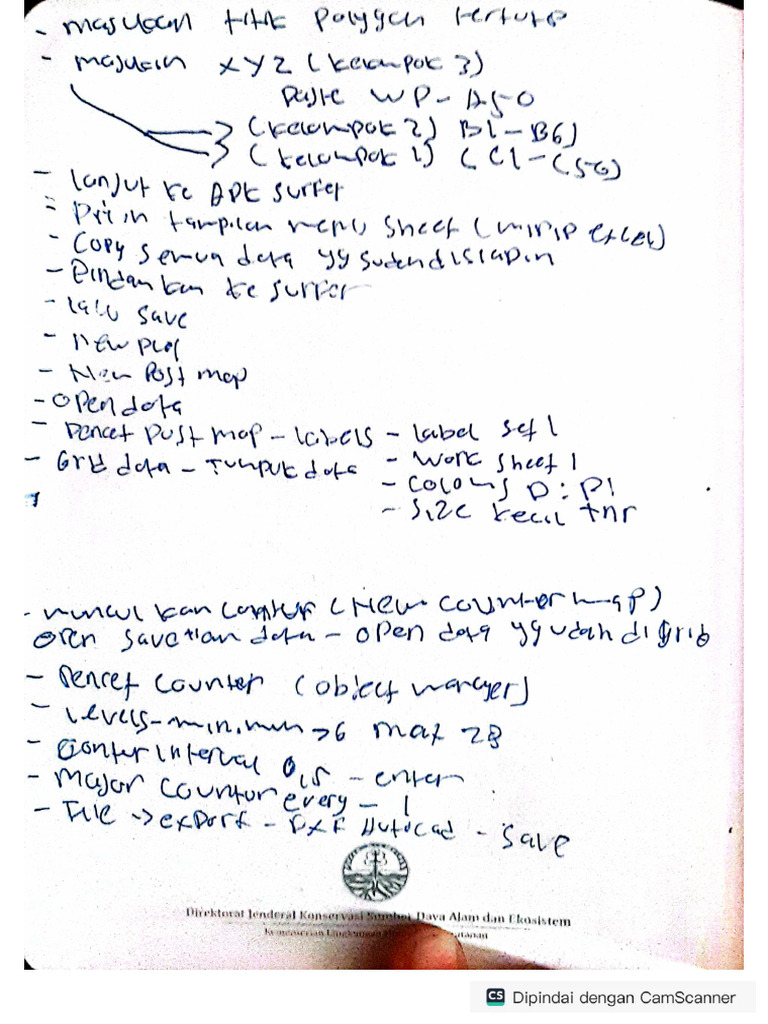 - masukan titik polygon tertutup
- masukin XYZ (kelompok 3)
paste WP-A50
(kelompok 2) B1-B6)
(kelompok 1) (C1-C56)
- lanjut ke APK surfer
- Pilih tampilan menu sheet (mirip excel)
- Copy semua data yg sudah disiapin
- Pindahkan ke surfer
- lalu save
- New plot
- New Post map
- Open data
- Pencet Post map - labels - label set 1
- Grid data - Tumpuk data - Work sheet 1
- Colom D: P1
- Size kecil tnr
- munculkan contur (New counter map)
open savetlan data - open data yg udah di grid
- Pencet counter (object manager)
- levels - min. mun → 6 max 28
- Conter interval 0,15 - enter
- Major countur every - 1
- File -> export - DXF Autocad - save
Direktorat Jenderal Konservasi Sumber Daya Alam dan Ekosistem
Kementerian Lingkungan
CS Dipindai dengan CamScanner